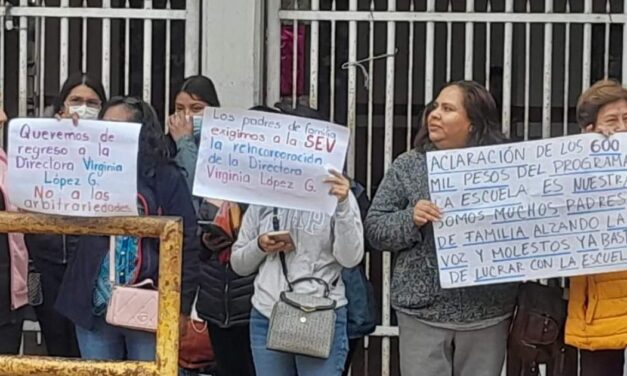 Queremos de
regreso a la
Directora Virginia
López G.
No a las
arbitrariedades
Los padres de familia
exigimos a la SEV
la reincorporación
de la Directora
Virginia López G.
ACLARACIÓN DE LOS 600
MIL PESOS DEL PROGRAMA
LA ESCUELA ES NUESTRA
SOMOS MUCHOS PADRES
DE FAMILIA ALZANDO LA
VOZ Y MOLESTOS YA BASTA
DE LUCRAR CON LA ESCUELA